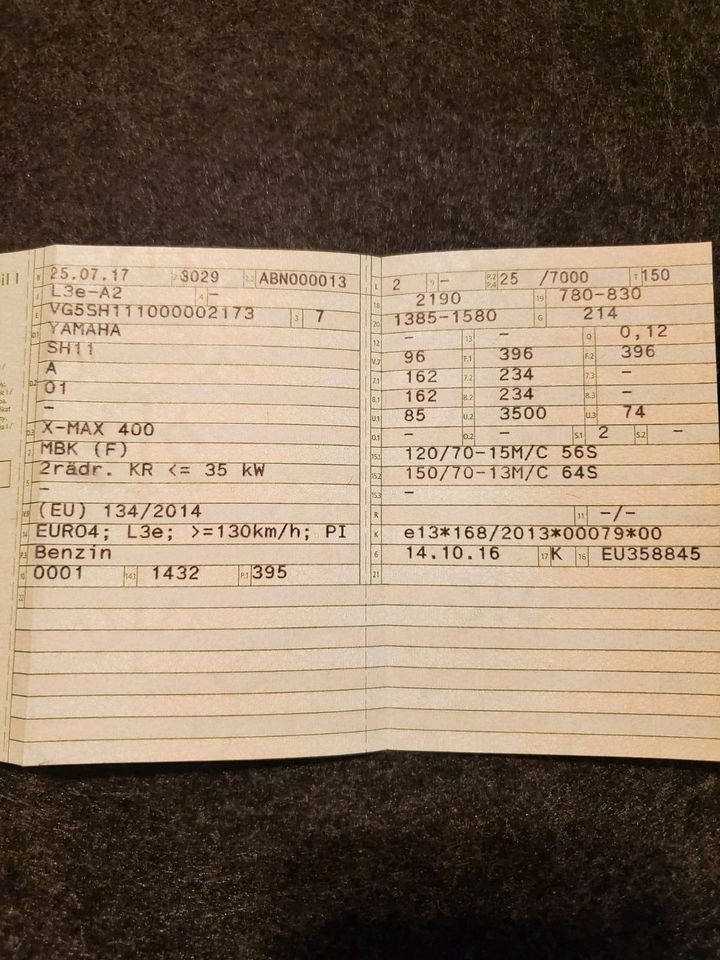 B 25.07.17 2.1 3029 2.2 ABN000013
J L3e-A2 4 -
E VG5SH111000002173 3 7
D.1 YAMAHA
SH11
A
D.2 01
-
D.3 X-MAX 400
2 MBK (F)
2rädr. KR <= 35 kW
5 -
V.9 (EU) 134/2014
14 EURO4; L3e; >=130km/h; PI
P.3 Benzin
10 0001 14.1 1432 P.1 395
22
L 2 9 - P.2 P.4 25 /7000 T 150
18 2190 19 780-830
20 1385-1580 G 214
12 - 13 - Q 0,12
V.7 96 F.1 396 F.2 396
7.1 162 7.2 234 7.3 -
8.1 162 8.2 234 8.3 -
U.1 85 U.2 3500 U.3 74
O.1 - O.2 - S.1 2 S.2 -
15.1 120/70-15M/C 56S
15.2 150/70-13M/C 64S
15.3 -
R 11 -/-
K e13*168/2013*00079*00
6 14.10.16 17 K 16 EU358845
21